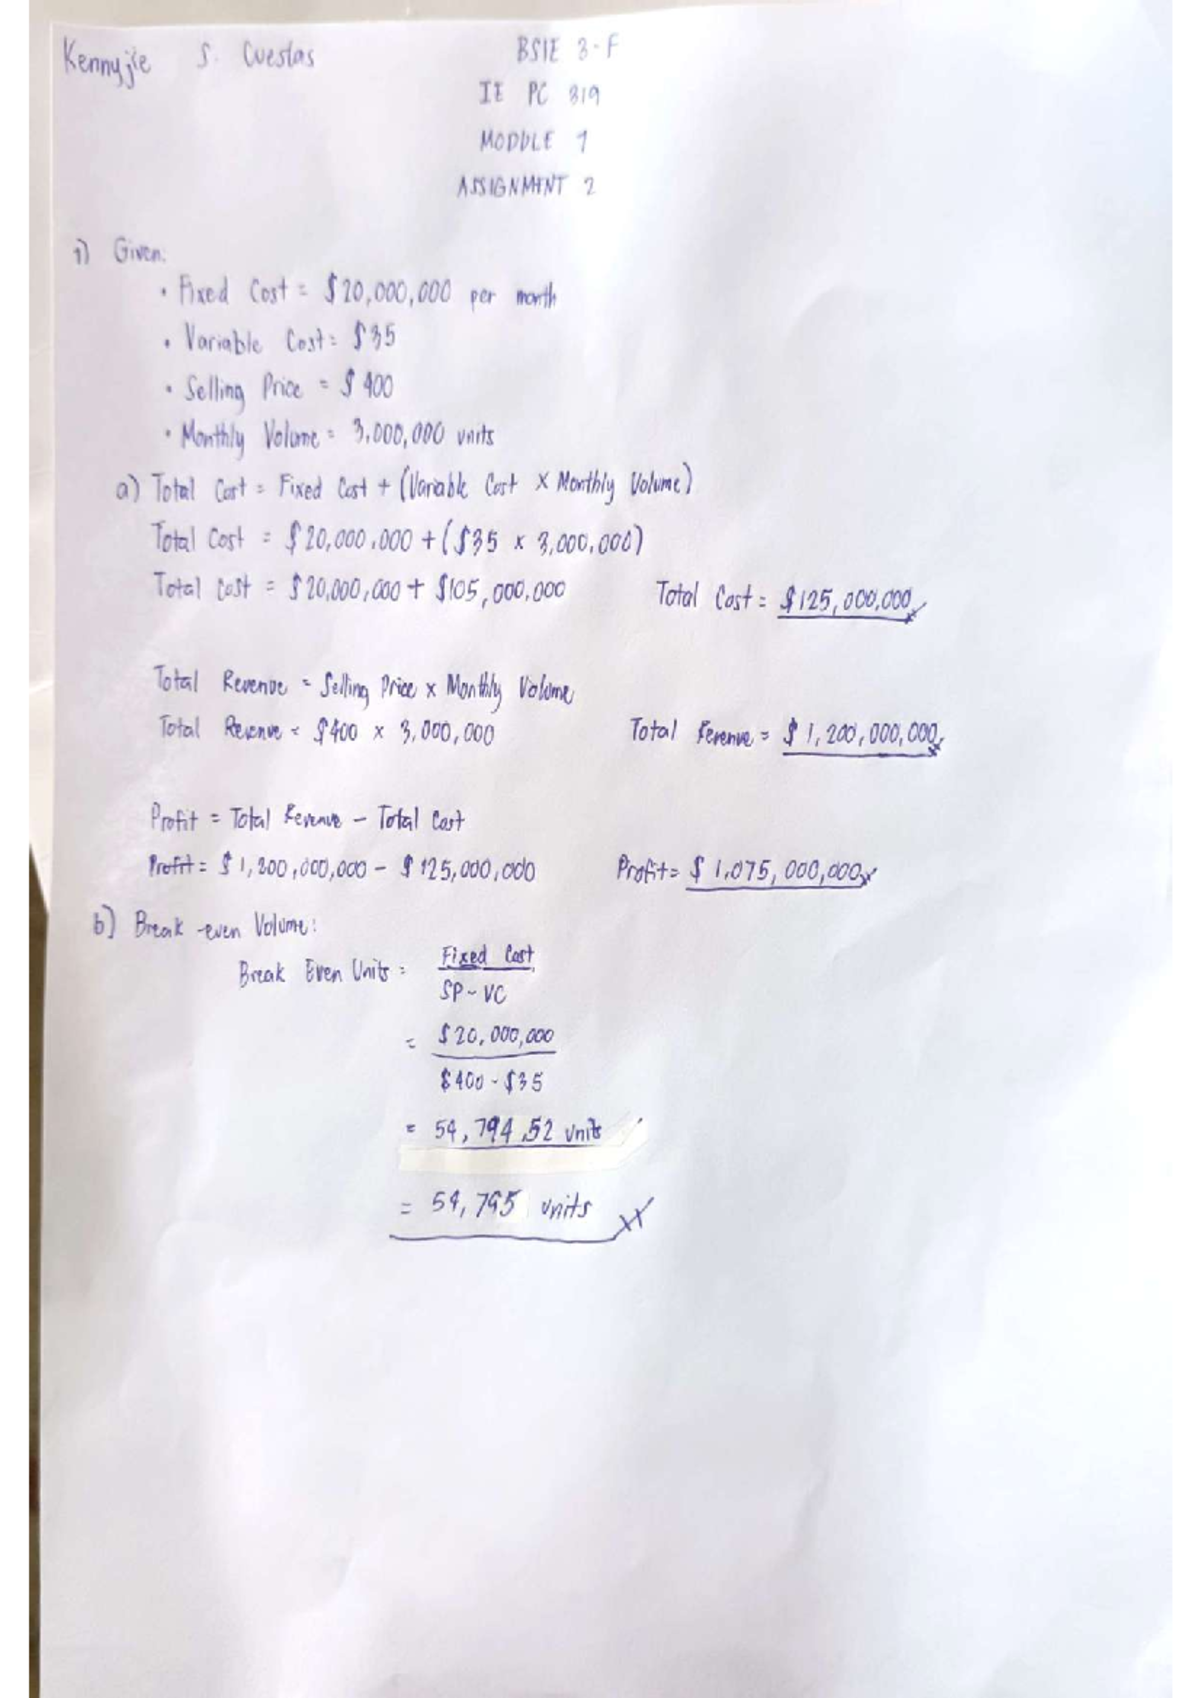 Kennyjie S. Cuestas BSIE 3-F
IE PC 319
MODULE 1
ASSIGNMENT 2
1) Given:
• Fixed Cost = $20,000,000 per month
• Variable Cost = $35
• Selling Price = $400
• Monthly Volume = 3,000,000 units
a) Total Cost = Fixed Cost + (Variable Cost × Monthly Volume)
Total Cost = $20,000,000 + ($35 × 3,000,000)
Total Cost = $20,000,000 + $105,000,000 Total Cost = $125,000,000
Total Revenue = Selling Price × Monthly Volume
Total Revenue = $400 × 3,000,000 Total Revenue = $1,200,000,000
Profit = Total Revenue - Total Cost
Profit = $1,200,000,000 - $125,000,000 Profit = $1,075,000,000
b) Break-even Volume:
Break Even Units = Fixed Cost
SP - VC
= $20,000,000
$400 - $35
= 54,794.52 units
= 54,795 units